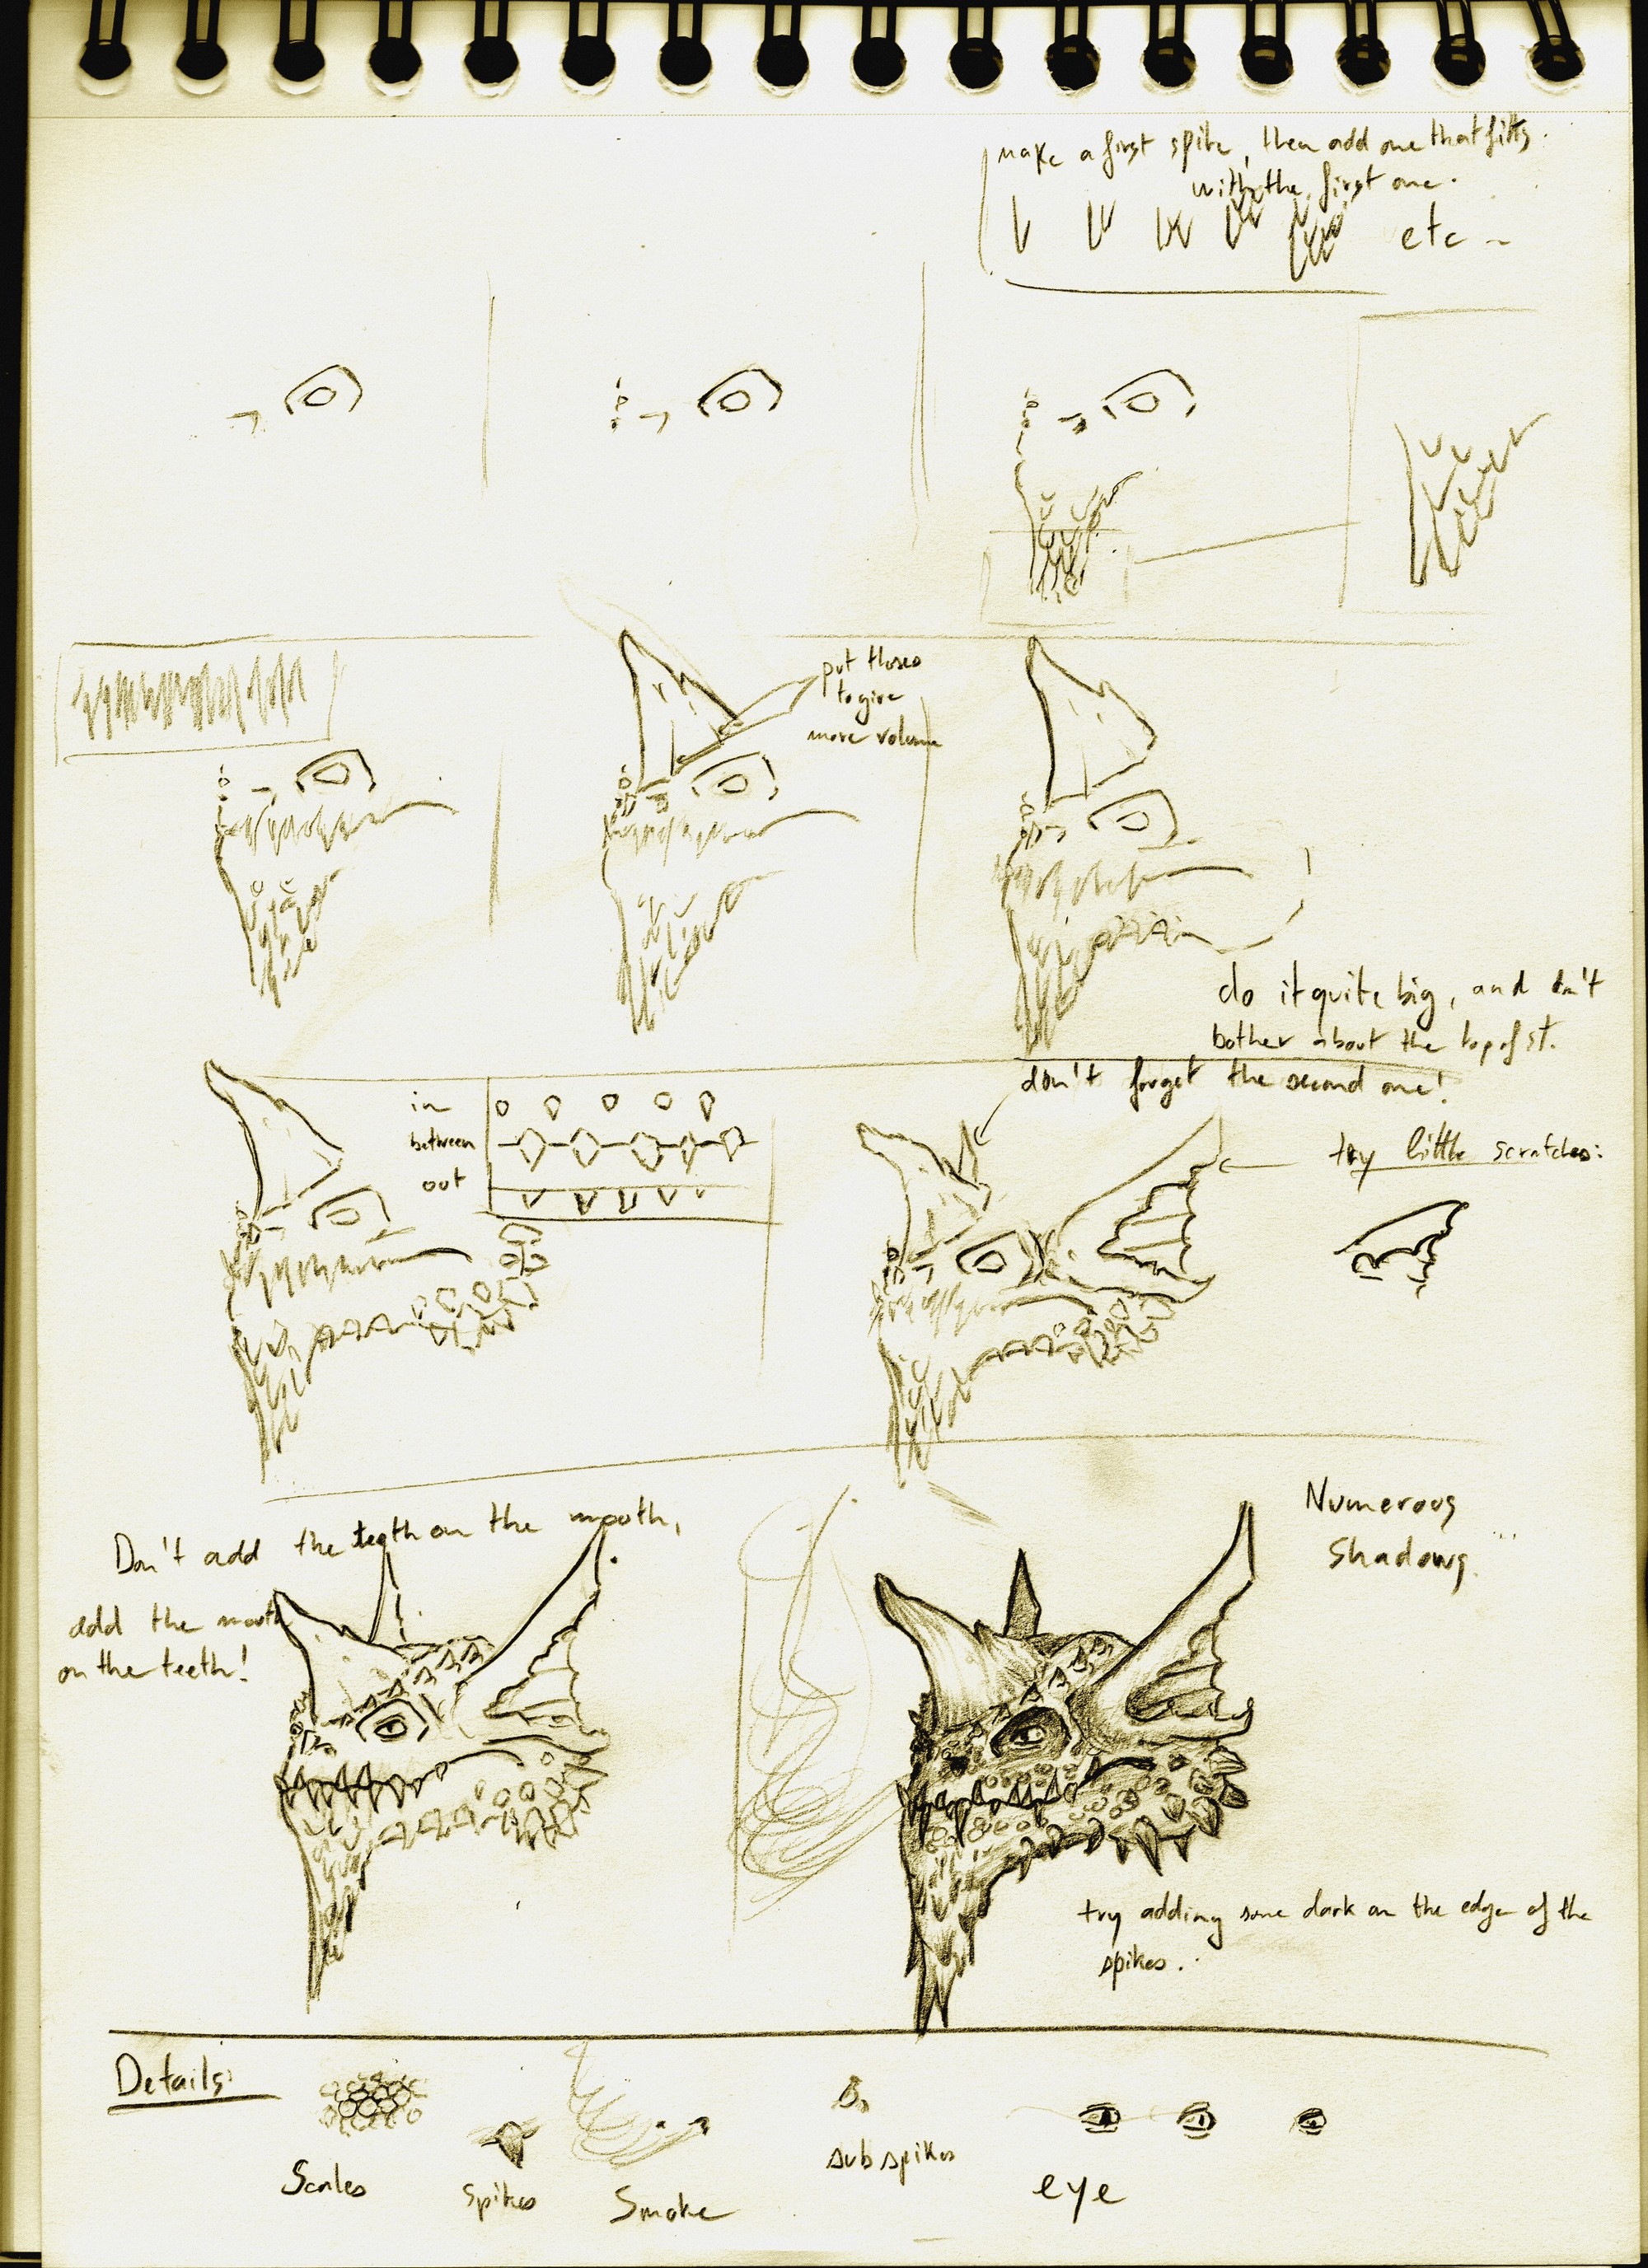 make a first spike, then add one that fitts
with the first one.
etc
put those
to give
more volume
do it quite big, and don't
bother about the top of it.
don't forget the second one!
in
between
out
try little scratches:
Don't add the teeth on the mouth,
add the mouth
on the teeth!
Numerous
Shadows
try adding some dark on the edge of the
spikes.
Details:
Scales
Spikes
Smoke
sub spikes
eye